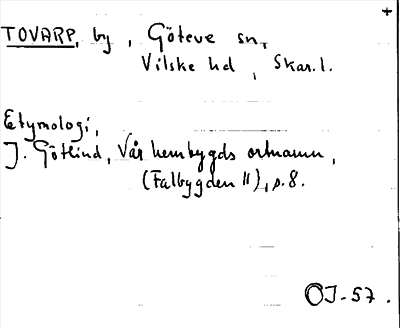 +
TOVARP, by, Göteve sn,
Vilske hd, Skar. l.
Etymologi,
J. Götlind, Vår hembygds ortnamn,
(Falbygden II), s. 8.
OJ-57.